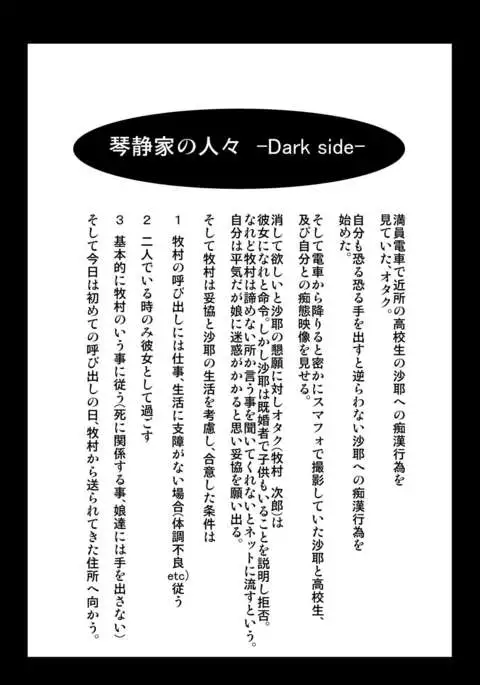 琴静家の人々 -Dark side-
満員電車で近所の高校生の沙耶への痴漢行為を
見ていた、オタク。
自分も恐る恐る手を出すと逆らわない沙耶への痴漢行為を
始めた。
そして電車から降りると密かにスマフォで撮影していた沙耶と高校生、
及び自分との痴態映像を見せる。
消して欲しいと沙耶の懇願に対しオタク(牧村 次郎)は
彼女になれと命令。しかし沙耶は既婚者で子供もいることを説明し拒否。
なれど牧村は諦めない所か言う事を聞いてくれないとネットに流すという。
自分は平気だが娘に迷惑がかかると思い妥協を願い出る。
そして牧村は妥協と沙耶の生活を考慮し、合意した条件は
1 牧村の呼び出しには仕事、生活に支障がない場合(体調不良etc)従う
2 二人でいる時のみ彼女として過ごす
3 基本的に牧村のいう事に従う(死に関係する事、娘達には手を出さない)
そして今日は初めての呼び出しの日、牧村から送られてきた住所へ向かう。